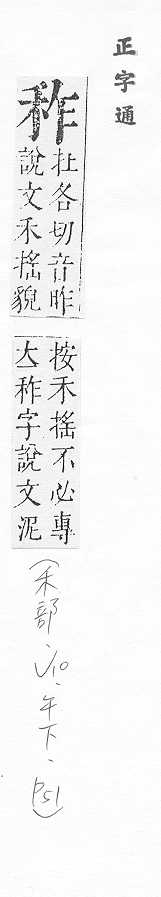 正字通
秨
杜各切音昨
說文禾搖貌
按禾搖不必專
大秨字說文泥
(禾部、V10、午下、P51)